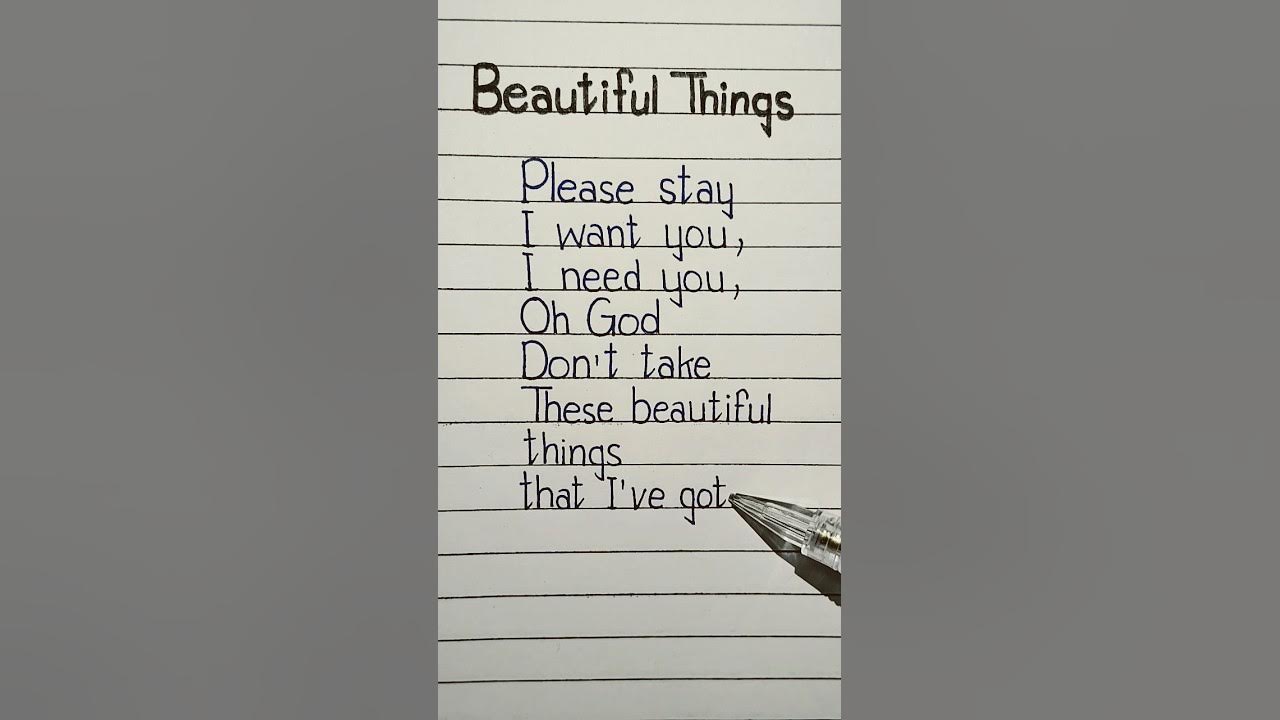 Beautiful Things
Please stay
I want you,
I need you,
Oh God
Don't take
These beautiful
things
that I've got